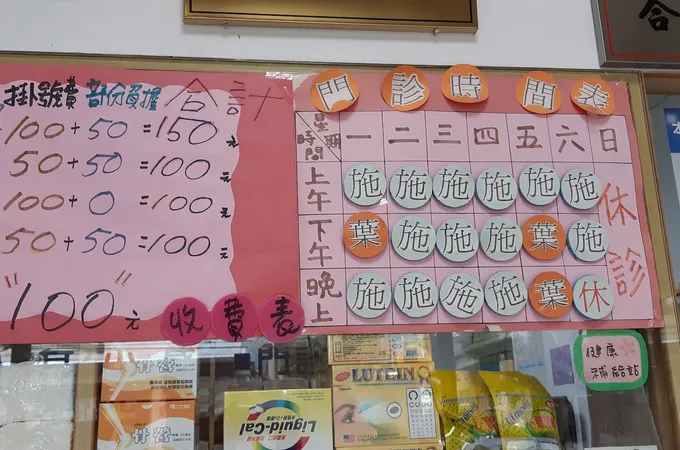 掛號費 部份負擔 合計
100+50=150元
50+50=100元
100+0=100元
50+50=100元
"100"元
收費表
門診時間表
星期 時間 一 二 三 四 五 六 日
上午 施 施 施 施 施 施 休診
下午 葉 施 施 施 葉 施
晚上 施 施 施 施 葉 休
健康
補給站
LUTEIN
Liquid-Cal
合